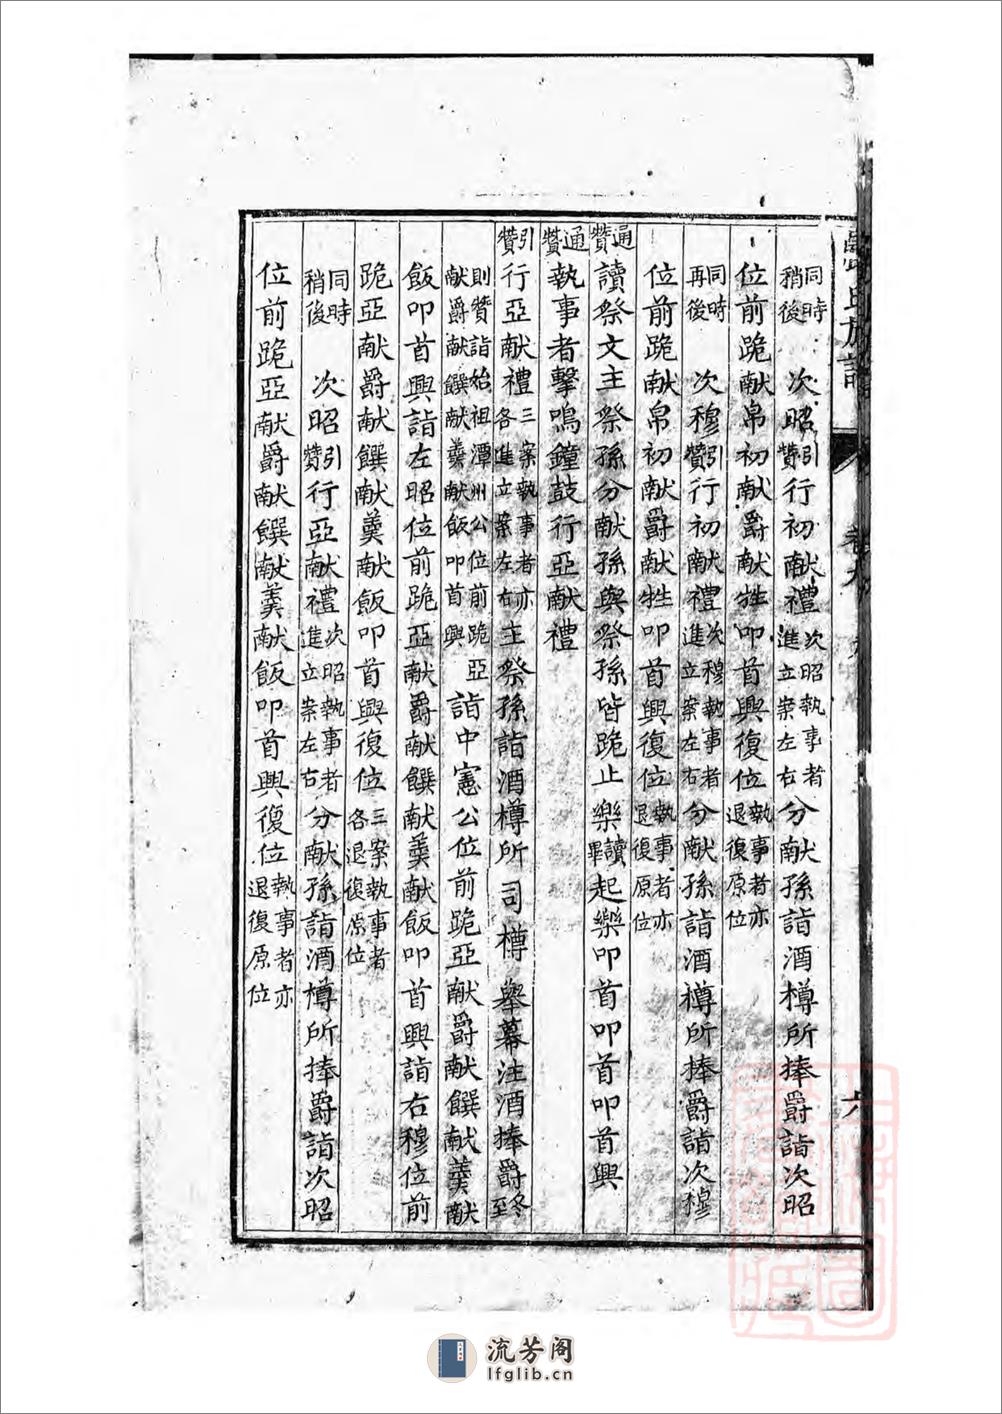 氏族譜 卷九 六
同時稍後 次昭引贊行初献禮次昭執事者進立案左右分献孫詣酒樽所捧爵詣次昭
位前跪献帛初献爵献牲叩首興復位執事者亦退復原位
同時再後 次穆引贊行初献禮次穆執事者進立案左右分献孫詣酒樽所捧爵詣次穆
位前跪献帛初献爵献牲叩首興復位執事者亦退復原位
通贊讀祭文主祭孫分献孫與祭孫皆跪止樂讀畢起樂叩首叩首叩首興
通贊執事者擊鳴鐘鼓行亞献禮
引贊行亞献禮三案執事者亦各進立案左右主祭孫詣酒樽所司樽舉幕注酒捧爵冬至
則贊詣始祖潭州公位前跪亞献爵献饌献羹献飯叩首興詣中憲公位前跪亞献爵献饌献羹献
飯叩首興詣左昭位前跪亞献爵献饌献羹献飯叩首興詣右穆位前
跪亞献爵献饌献羹献飯叩首興復位三案執事者各退復原位
同時稍後 次昭引贊行亞献禮次昭執事者進立案左右分献孫詣酒樽所捧爵詣次昭
位前跪亞献爵献饌献羹献飯叩首興復位執事者亦退復原位
流芳阁
lfglib.cn